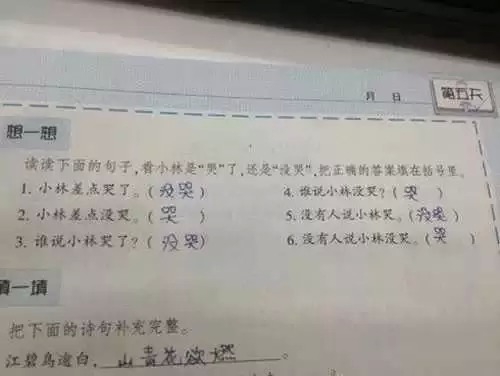 月 日 第五天
想一想
读读下面的句子,看小林是“哭”了,还是“没哭”,把正确的答案填在括号里。
1. 小林差点哭了。(没哭) 4. 谁说小林没哭?(哭)
2. 小林差点没哭。(哭) 5. 没有人说小林哭。(没哭)
3. 谁说小林哭了?(没哭) 6. 没有人说小林没哭。(哭)
填一填
把下面的诗句补充完整。
江碧鸟逾白,山青花欲燃。